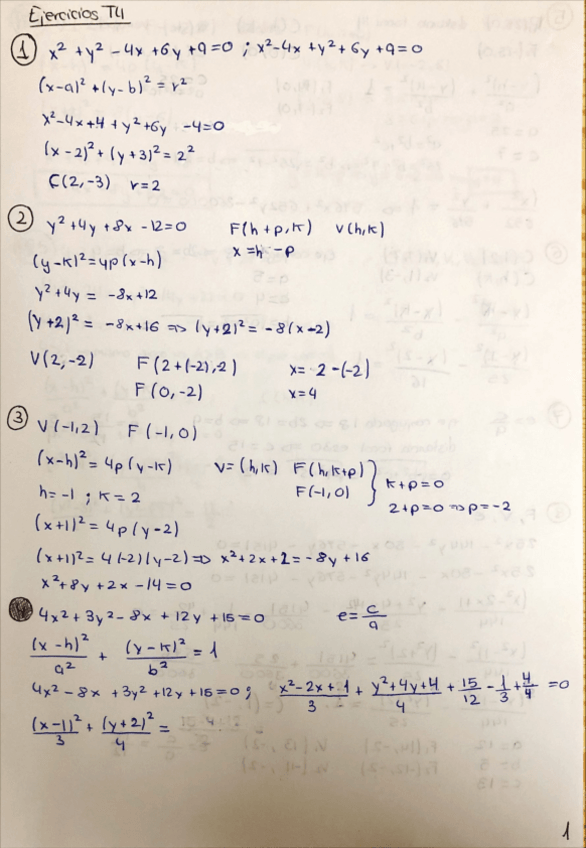 Ejercicios T4
① x² + y² - 4x + 6y + 9 = 0 ; x² - 4x + y² + 6y + 9 = 0
(x-a)² + (y-b)² = r²
x² - 4x + 4 + y² + 6y - 4 = 0
(x-2)² + (y+3)² = 2²
C(2,-3) r = 2
② y² + 4y + 8x - 12 = 0 F(h+p,k) V(h,k)
(y-k)² = 4p(x-h) x = h - p
y² + 4y = -8x + 12
(y+2)² = -8x + 16 => (y+2)² = -8(x-2)
V(2,-2) F(2+(-2),2) x = 2 - (-2)
F(0,-2) x = 4
③ V(-1,2) F(-1,0)
(x-h)² = 4p(y-k) V = (h,k) F(h,k+p) } k + p = 0
h = -1 ; k = 2 F(-1,0) 2 + p = 0 => p = -2
(x+1)² = 4p(y-2)
(x+1)² = 4(-2)(y-2) => x² + 2x + 1 = -8y + 16
x² + 8y + 2x - 14 = 0
4x² + 3y² - 8x + 12y + 15 = 0 e = c/a
(x-h)²/a² + (y-k)²/b² = 1
4x² - 8x + 3y² + 12y + 15 = 0 ; (x² - 2x + 1)/3 + (y² + 4y + 4)/4 + 15/12 - 1/3 + 4/4 = 0
(x-1)²/3 + (y+2)²/4 =
1